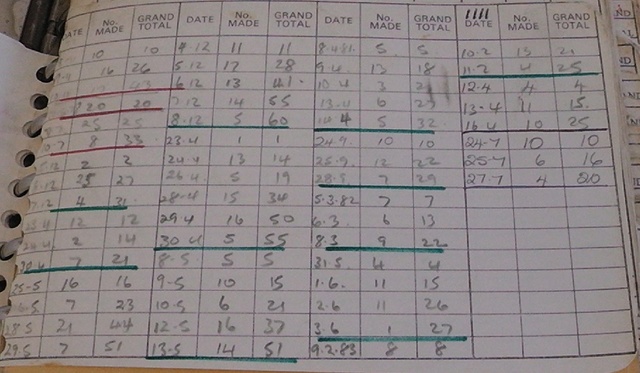 DATE No. MADE GRAND TOTAL DATE No. MADE GRAND TOTAL DATE No. MADE GRAND TOTAL DATE No. MADE GRAND TOTAL
10 10 4.12 11 11 8.4.81. 5 5 10.2 13 21
16 26 5.12 17 28 9.4 13 18 11.2 4 25
6.12 13 41. 10.4 3 21 12.4 4 4
20 20 7.12 14 55 13.4 6 27 13.4 11 15.
25 25 8.12 5 60 14.4 5 32 16.4 10 25
8 33 23.4 1 1 24.9. 10 10 24.7 10 10
2 2 24.4 13 14 25.9. 12 22 25.7 6 16
25 27 26.4 5 19 28.9 7 29 27.7 4 20
4 31 28.4 15 34 5.3.82 7 7
12 12 29.4 16 50 6.3. 6 13
2 14 30.4 5 55 8.3 9 22
7 21 8.5 5 5 31.5. 4 4
25.5 16 16 9.5 10 15 1.6. 11 15
7 23 10.5 6 21 2.6 11 26
28.5 21 44 12.5 16 37 3.6 1 27
29.5 7 51 13.5 14 51 9.2.83 8 8